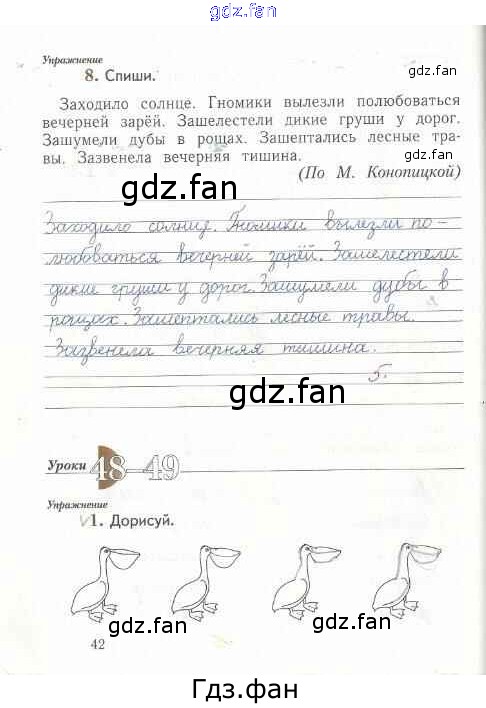 gdz.fan
Упражнение
8. Спиши.
gdz.fan
Заходило солнце. Гномики вылезли полюбоваться
вечерней зарёй. Зашелестели дикие груши у дорог.
Зашумели дубы в рощах. Зашептались лесные тра-
вы. Зазвенела вечерняя тишина.
gdz.fan
(По М. Конопицкой)
gdz.fan
Заходило солнце. Гномики вылезли по-
любоваться вечерней зарёй. Зашелестели
дикие груши у дорог. Зашумели дубы в
рощах. Зашептались лесные травы.
Зазвенела вечерняя тишина.
5.
gdz.fan
Уроки 48–49
Упражнение
1. Дорисуй.
gdz.fan
gdz.fan
42
Гдз.фан